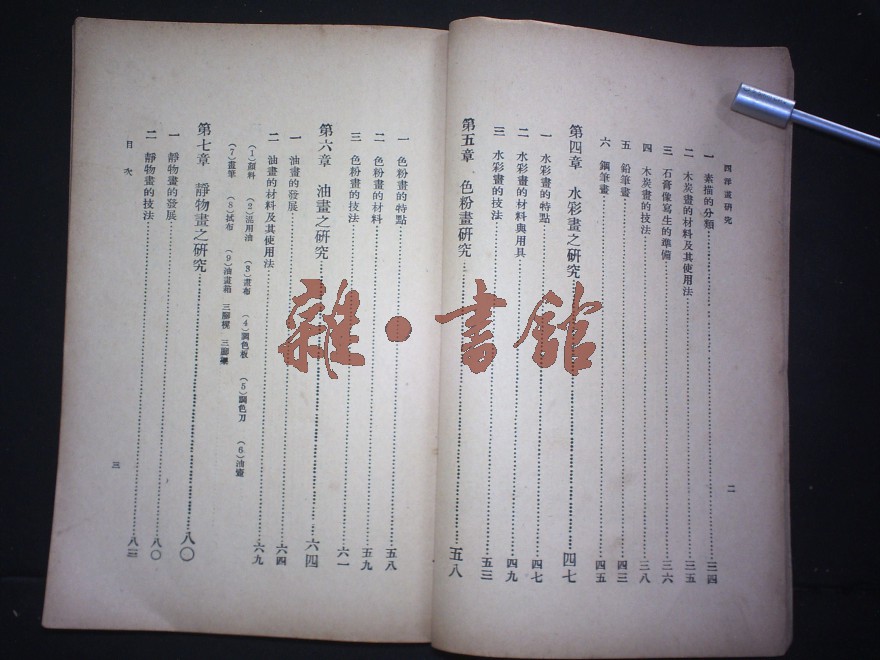 西洋畫研究
一 素描的分類 三四
二 木炭畫的材料及其使用法 三五
三 石膏像寫生的準備 三六
四 木炭畫的技法 三八
五 鉛筆畫 四三
六 鋼筆畫 四五
第四章 水彩畫之研究 四七
一 水彩畫的特點 四七
二 水彩畫的材料與用具 四九
三 水彩畫的技法 五三
第五章 色粉畫研究 五八
二
一 色粉畫的特點 五八
二 色粉畫的材料 五九
三 色粉畫的技法 六一
第六章 油畫之研究 六四
一 油畫的發展 六四
二 油畫的材料及其使用法 六九
(1)顏料 (2)泥用油 (3)畫布 (4)調色板 (5)調色刀 (6)油壺
(7)畫筆 (8)拭布 (9)油畫箱 三腳凳 三腳架
第七章 靜物畫之研究 八〇
一 靜物畫的發展 八〇
二 靜物畫的技法 八三
目次
三
雜·書館